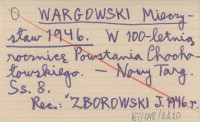 O WARGOWSKI Mieczy-
sław 1946. W 100-letnią
rocznicę Powstania Chocho-
łowskiego. — Nowy Targ.
Ss. 8.
Rec.: ZBOROWSKI J. 1946 r.